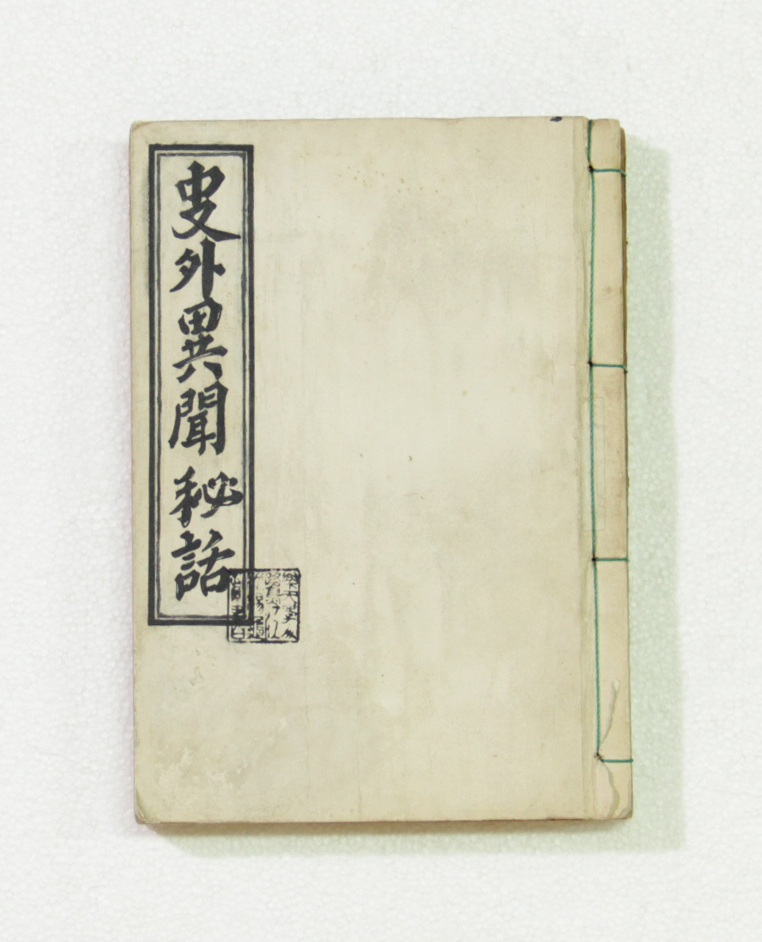 史外異聞秘話